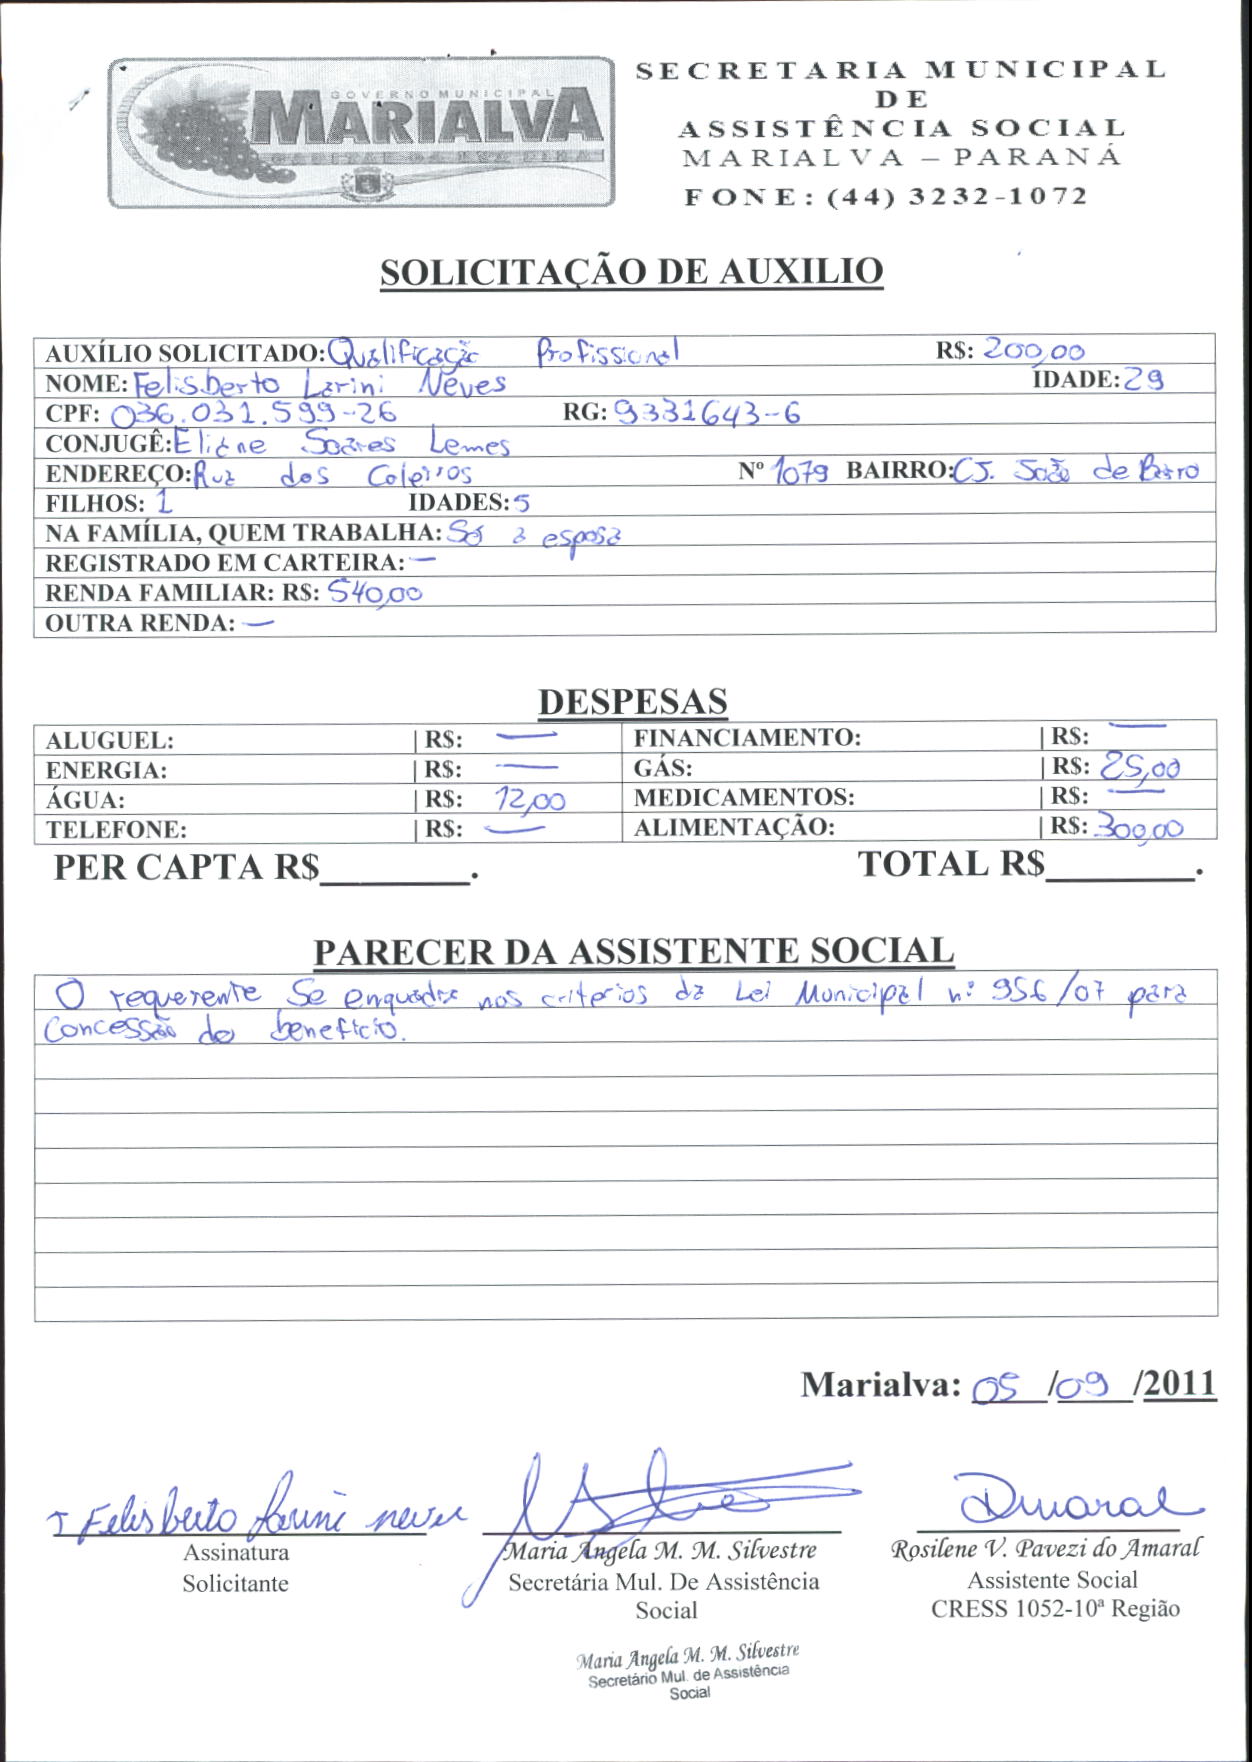 GOVERNO MUNICIPAL
MARIALVA
CAPITAL DA UVA FINA
SECRETARIA MUNICIPAL
DE
ASSISTÊNCIA SOCIAL
MARIALVA – PARANÁ
FONE: (44) 3232-1072
SOLICITAÇÃO DE AUXILIO
AUXÍLIO SOLICITADO: Qualificação Profissional R$: 200,00
NOME: Felisberto Larini Neves IDADE: 29
CPF: 036.031.599-26 RG: 9331643-6
CONJUGÊ: Eliane Soares Lemes
ENDEREÇO: Rua dos Coleiros Nº 1079 BAIRRO: CJ. João de Barro
FILHOS: 1 IDADES: 5
NA FAMÍLIA, QUEM TRABALHA: Só a esposa
REGISTRADO EM CARTEIRA: —
RENDA FAMILIAR: R$: 540,00
OUTRA RENDA: —
DESPESAS
ALUGUEL: | R$: — FINANCIAMENTO: | R$: —
ENERGIA: | R$: — GÁS: | R$: 25,00
ÁGUA: | R$: 12,00 MEDICAMENTOS: | R$: —
TELEFONE: | R$: — ALIMENTAÇÃO: | R$: 300,00
PER CAPTA R$________. TOTAL R$________.
PARECER DA ASSISTENTE SOCIAL
O requerente se enquadra nos criterios da Lei Municipal nº 956/07 para
concessão do beneficio.
Marialva: 05 /09 /2011
Felisberto Larini neves
Amaral
Assinatura
Solicitante
Maria Angela M. M. Silvestre
Secretária Mul. De Assistência
Social
Rosilene V. Pavezi do Amaral
Assistente Social
CRESS 1052-10ª Região
Maria Angela M. M. Silvestre
Secretário Mul. de Assistência
Social